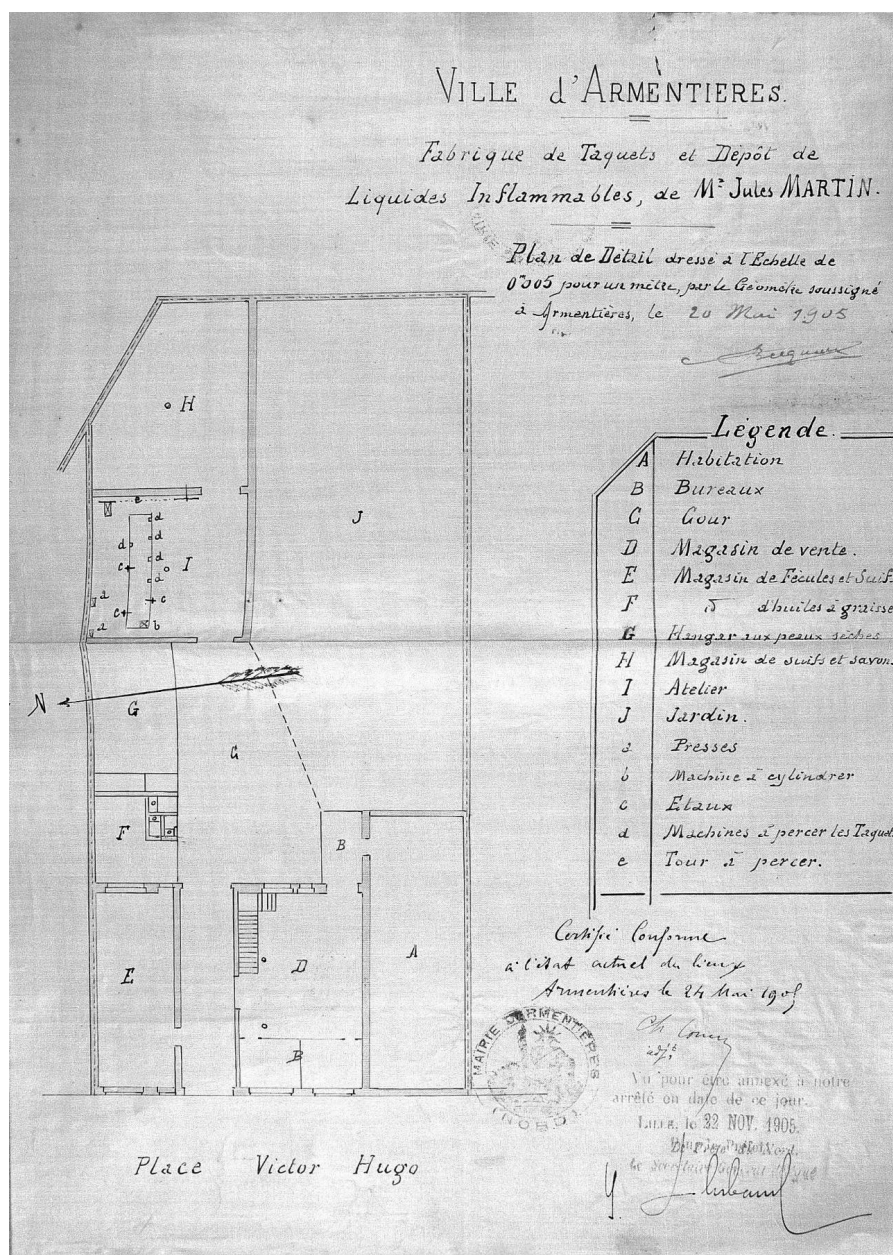 VILLE d'ARMENTIERES.
Fabrique de Taquets et Dépôt de
Liquides Inflammables, de Mr Jules MARTIN.
Plan de Détail dressé à l'Echelle de
0m005 pour un mètre, par le Géomètre soussigné
à Armentières, le 20 Mai 1905
Légende.
A Habitation
B Bureaux
C Cour
D Magasin de vente.
E Magasin de Fécules et Suif.
F id d'huiles à graisse
G Hangar aux peaux sèches
H Magasin de suifs et savon.
I Atelier
J Jardin.
a Presses
b Machine à cylindrer
c Etaux
d Machines à percer les Taquet
e Tour à percer.
H
e
d
d
d
d
d
c
c
c
a
a
b
I
J
N
G
C
F
B
E
D
A
B
Place Victor Hugo
Certifié Conforme
à l'état actuel des lieux
Armentières le 24 Mai 1905
adjt
MAIRIE D'ARMENTIERES
(NORD)
Vu pour être annexé à notre
arrêté en date de ce jour.
LILLE, le 22 NOV. 1905.